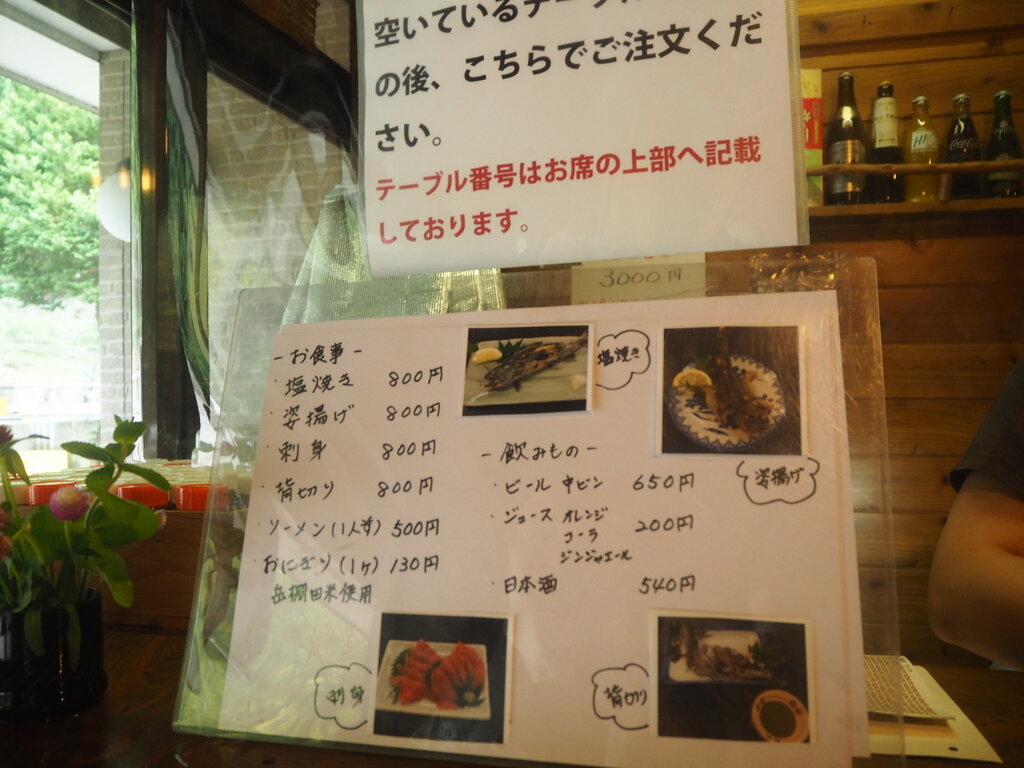 空いているテーブル
の後、こちらでご注文くだ
さい。
テーブル番号はお席の上部へ記載
しております。
3000円
-お食事-
・塩焼き 800円
・姿揚げ 800円
・刺身 800円
・背切り 800円
・ソーメン(1人前) 500円
・おにぎり(1ヶ) 130円
岳棚田米使用
塩焼き
姿揚げ
-飲みもの-
・ビール 中ビン 650円
・ジュース オレンジ
コーラ 200円
ジンジャエール
・日本酒 540円
刺身
背切り